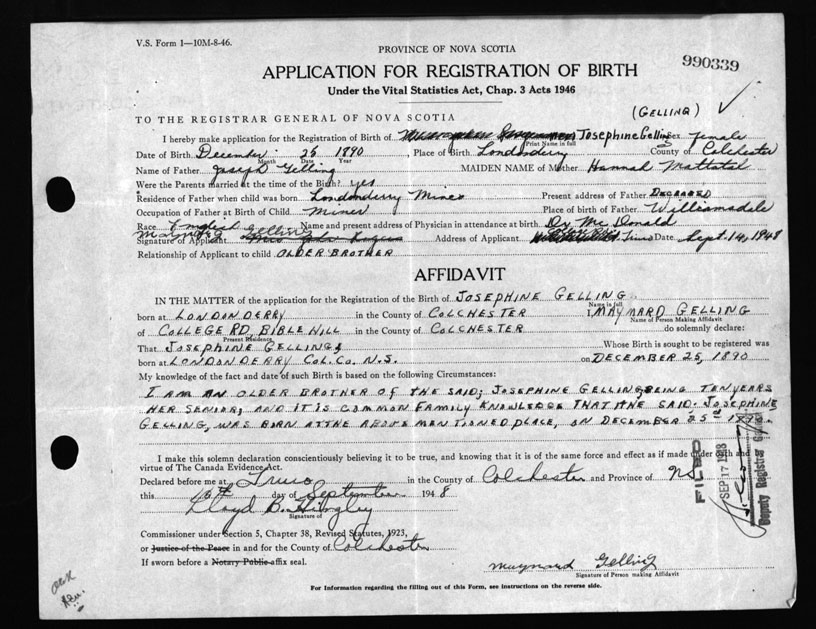 V.S. Form 1—10M-8-46.
PROVINCE OF NOVA SCOTIA
990339
APPLICATION FOR REGISTRATION OF BIRTH
Under the Vital Statistics Act, Chap. 3 Acts 1946
(GELLING)
TO THE REGISTRAR GENERAL OF NOVA SCOTIA
I hereby make application for the Registration of Birth of Josephine Gelling Sex female
Print Name in full
Date of Birth December 25 1890 Place of Birth Londonderry County of Colchester
Month Date Year
Name of Father Joseph Gelling MAIDEN NAME of Mother Hannah Mattatal
Were the Parents married at the time of the Birth? yes
Residence of Father when child was born Londonderry Mines Present address of Father DECEASED
Occupation of Father at Birth of Child Miner Place of birth of Father Williamsdale
Race English Name and present address of Physician in attendance at birth Dr McDonald
Maynard Gelling
Signature of Applicant Address of Applicant Truro Date Sept. 14, 1948
Relationship of Applicant to child OLDER BROTHER
AFFIDAVIT
IN THE MATTER of the application for the Registration of the Birth of JOSEPHINE GELLING
Name in full
born at LONDONDERRY in the County of COLCHESTER I, MAYNARD GELLING
Name of Person Making Affidavit
of COLLEGE RD, BIBLE HILL in the County of COLCHESTER do solemnly declare:
Present Residence
That JOSEPHINE GELLING, Whose Birth is sought to be registered was
born at LONDONDERRY COL. CO. N.S. on DECEMBER 25, 1890
My knowledge of the fact and date of such Birth is based on the following Circumstances:
I AM AN OLDER BROTHER OF THE SAID; JOSEPHINE GELLING, BEING TEN YEARS
HER SENIOR, AND IT IS COMMON FAMILY KNOWLEDGE THAT THE SAID JOSEPHINE
GELLING, WAS BORN AT THE ABOVE MENTIONED PLACE, ON DECEMBER 25TH 1890.
I make this solemn declaration conscientiously believing it to be true, and knowing that it is of the same force and effect as if made under oath and by
virtue of The Canada Evidence Act.
Declared before me at Truro in the County of Colchester and Province of NS
this day of September 1948
Lloyd B.
Signature of
Commissioner under Section 5, Chapter 38, Revised Statutes, 1923,
or Justice of the Peace in and for the County of Colchester
If sworn before a Notary Public affix seal.
Maynard Gelling
Signature of Person making Affidavit
For Information regarding the filling out of this Form, see instructions on the reverse side.
FILED
SEP 17 1948
Deputy Registrar General